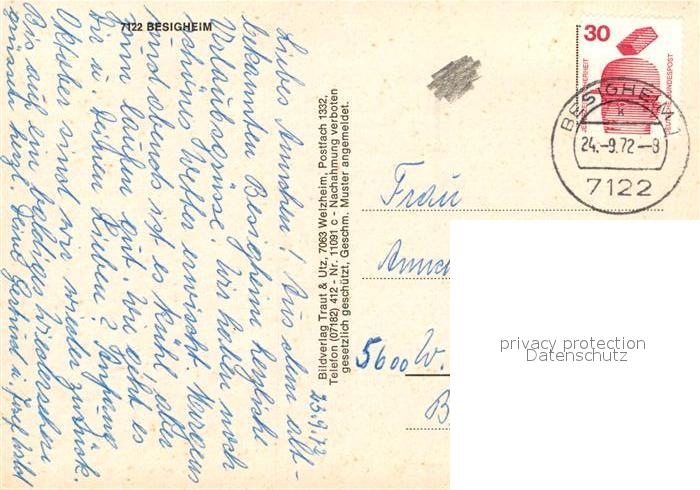 7122 BESIGHEIM
Liebes Annchen! Aus dem alt-
bekannten Besigheim herzliche
Urlaubsgrüsse. Wir haben noch
schönes Wetter erwischt. Morgens
und abends ist es kühl aber
zum laufen gut. Wie geht es
Dir u. Deinen Lieben? Anfang
Oktober sind wir wieder zurück.
Bis auf ein baldiges Wiedersehen
grüsst herzl. Deine Gertrud u.
23.9.72
Bildverlag Traut & Utz, 7063 Welzheim, Postfach 1332,
Telefon (07182) 412 - Nr. 11091 c - Nachahmung verboten
gesetzlich geschützt, Geschm. Muster angemeldet.
30
JEDERZEIT SICHERHEIT
DEUTSCHE BUNDESPOST
BESIGHEIM 1
k
24.-9.72-8
7122
Frau
5600 W.
privacy protection
Datenschutz